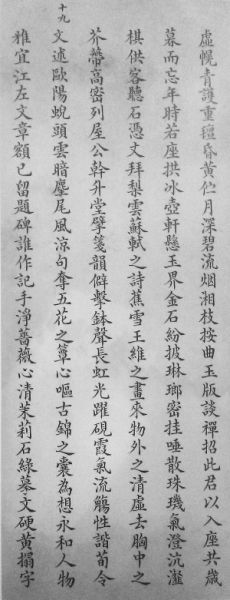 虛幌青護重簷昏黃伫月深碧流烟湘枝按曲玉版談禪招此君以入座共歲
暮而忘年時若座拱冰壺軒懸玉界金石紛披琳瑯密挂唾散珠璣氣澄沆瀣
棋供客聽石憑丈拜梨雲蘇軾之詩蕉雪王維之畫來物外之清虛去胸中之
芥蔕高密列屋公幹升堂擘箋韻僻擊鉢聲長虹光躍硯霞氣流觴性諧荀令
文述歐陽蛻頭雲暗麈尾風涼句奪五花之簟心嘔古錦之囊為想永和人物
雅宜江左文章額已留題碑誰作記手淨薔薇心清茉莉石綠摹文硬黃搨字
十九